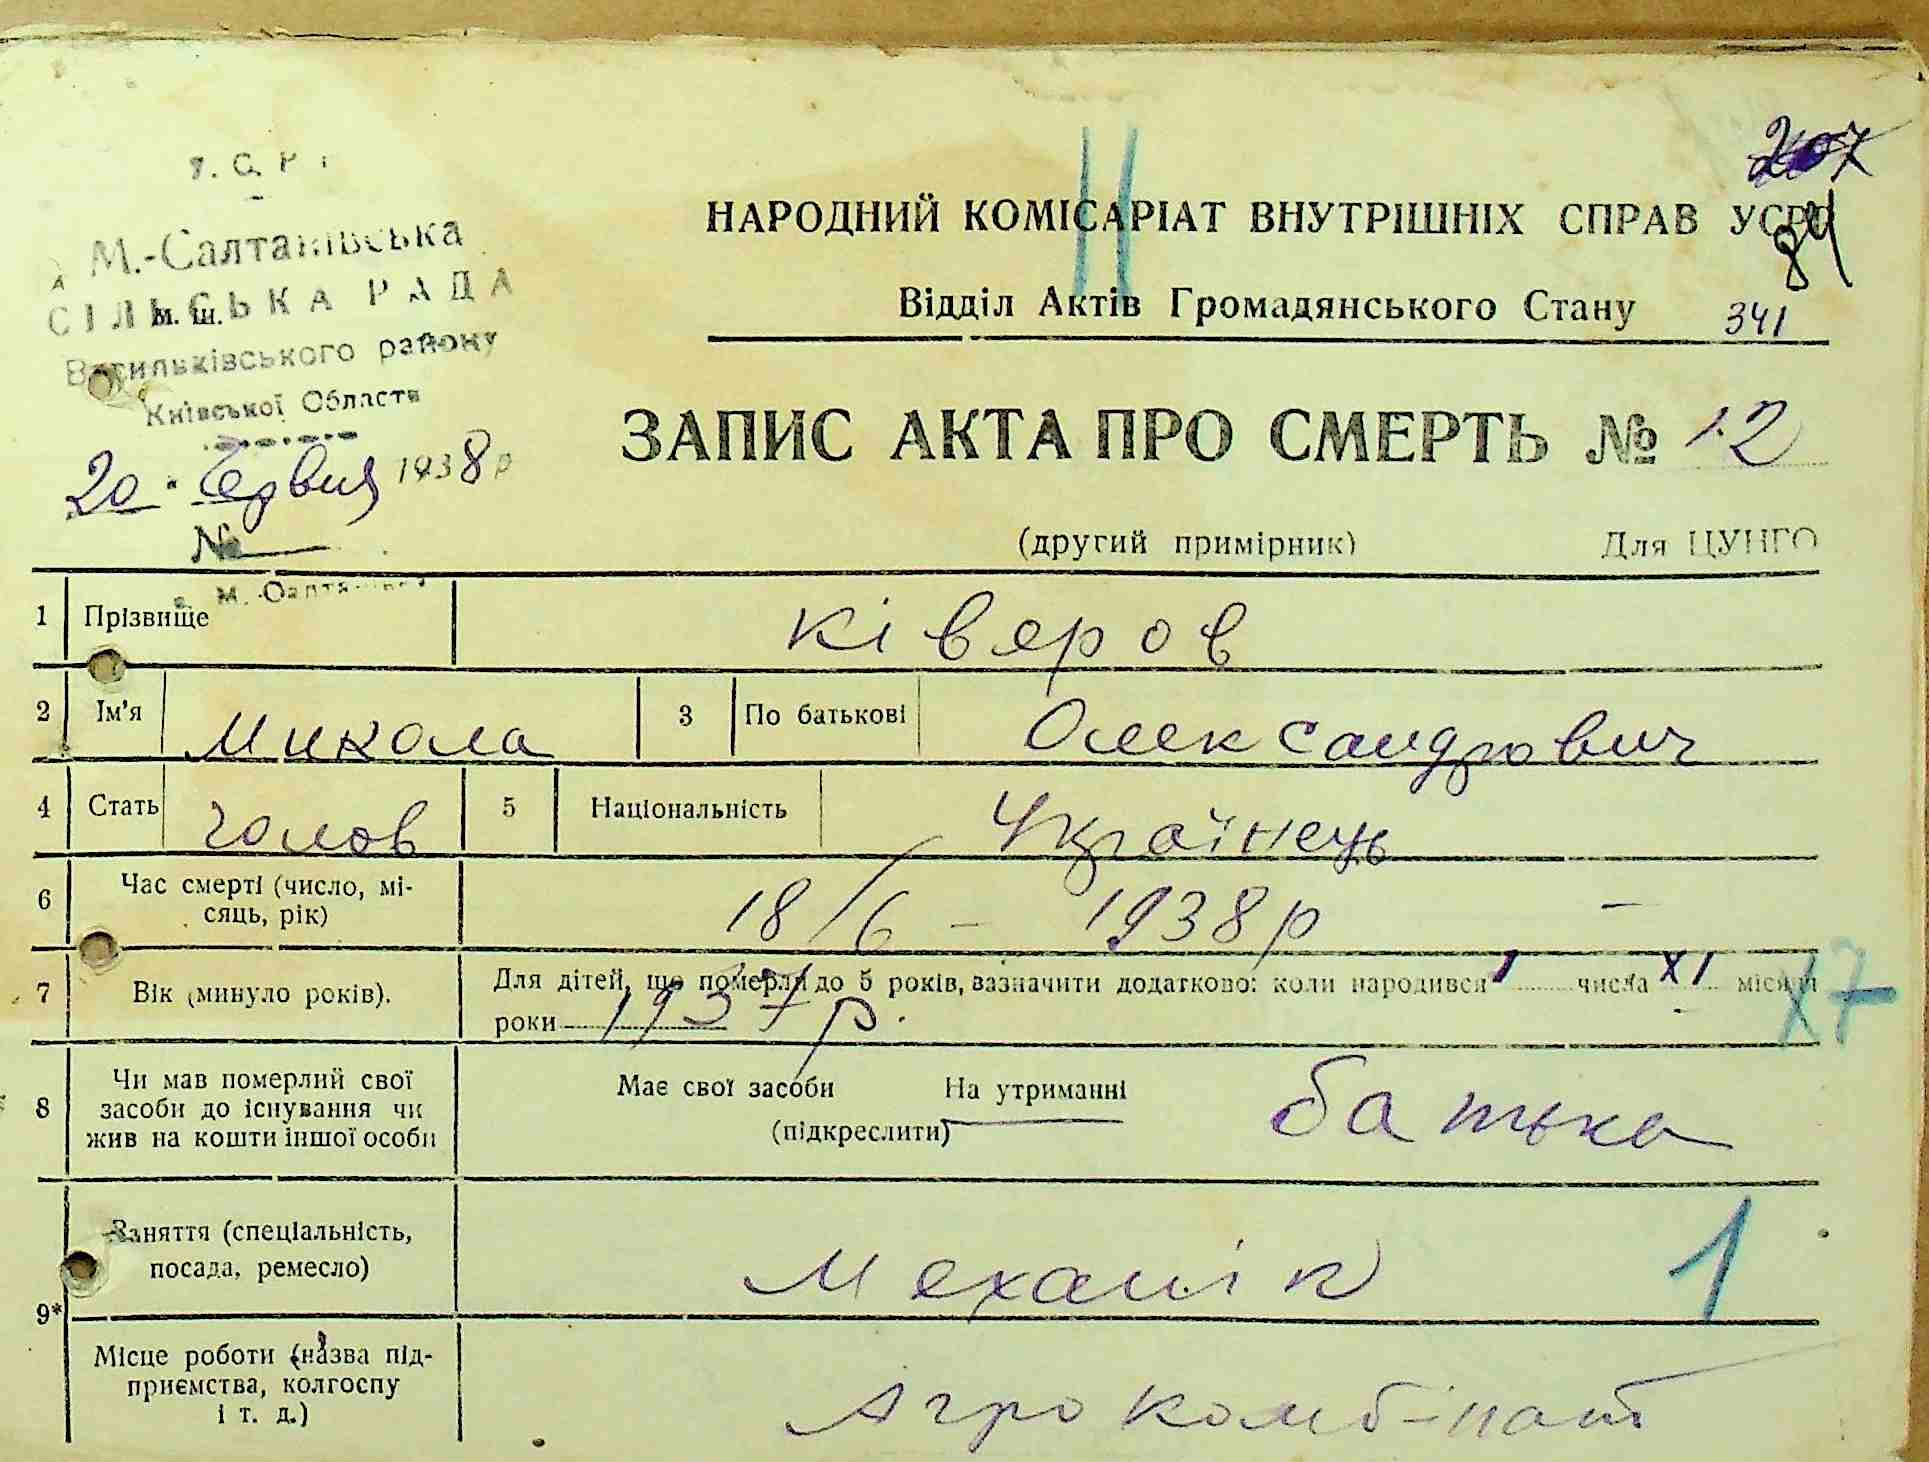 М.-Салтанівська
СІЛЬСЬКА РАДА
м. ш.
Васильківського району
Київської Области
20. Червня 1938 р
№
207
НАРОДНИЙ КОМІСАРІАТ ВНУТРІШНІХ СПРАВ УСРР
84
Відділ Актів Громадянського Стану 341
ЗАПИС АКТА ПРО СМЕРТЬ № 12
(другий примірник) Для ЦУНГО
1 Прізвище Ківеров
2 Ім'я Микола 3 По батькові Олександрович
4 Стать чолов 5 Національність Українець
6 Час смерті (число, мі-
сяць, рік) 18/6 - 1938 р -
7 Вік (минуло років). Для дітей, що померли до 5 років, зазначити додатково: коли народився 1 числа XI місяця
роки 1937 р. 7
8 Чи мав померлий свої
засоби до існування чи
жив на кошти іншої особи
Має свої засоби На утриманні батька
(підкреслити)
9* Заняття (спеціальність,
посада, ремесло) Механік 1
Місце роботи (назва під-
приємства, колгоспу
і т. д.) Агрокомбінат